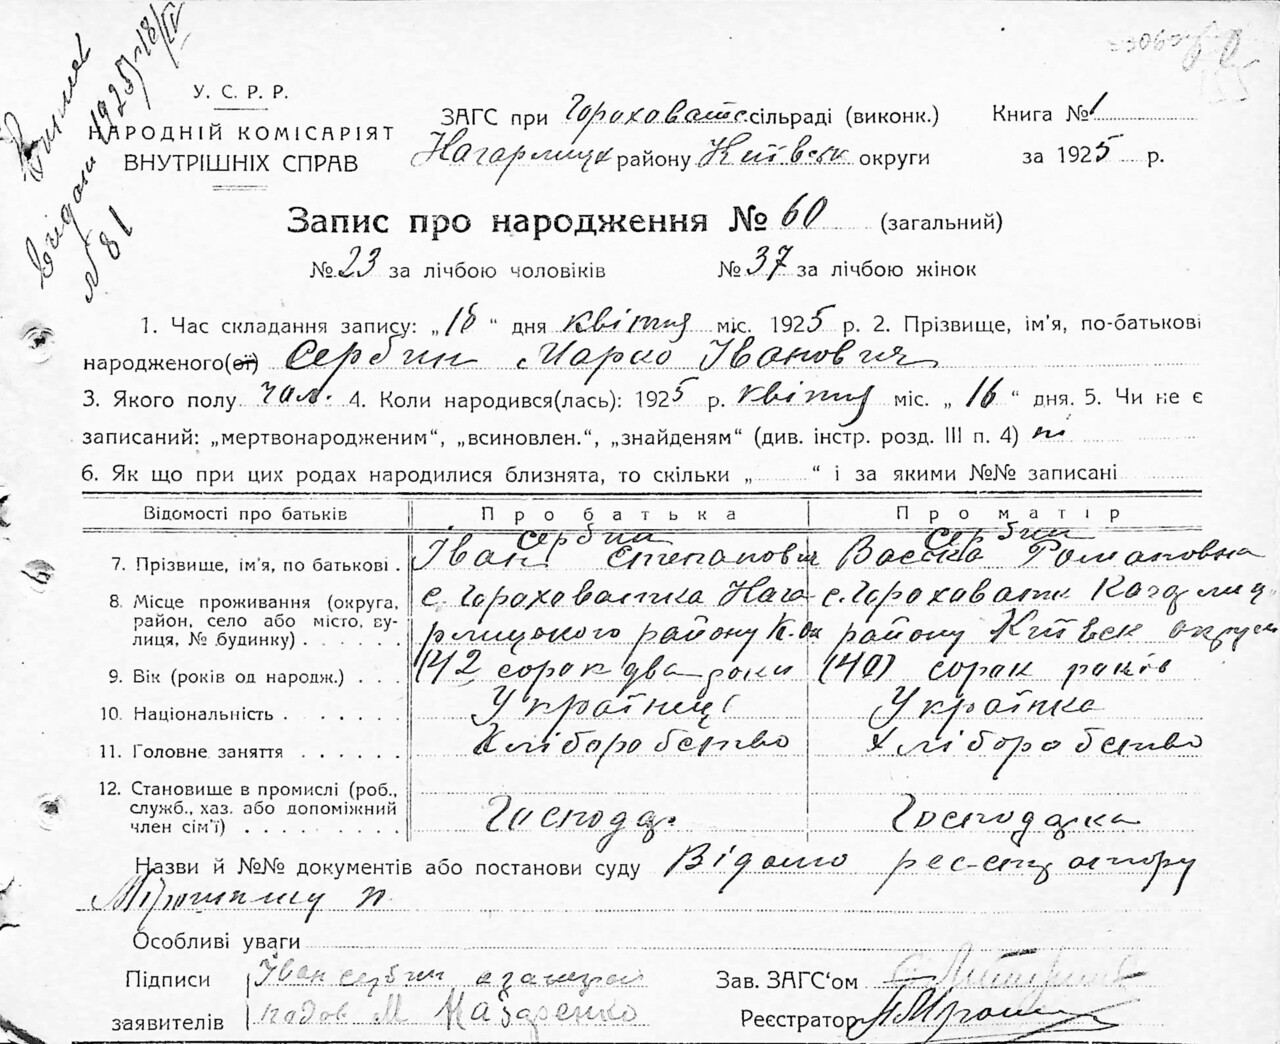 Випись
видали 1925/18/IV
№ 81
У. С. Р. Р.
НАРОДНІЙ КОМІСАРІЯТ
ВНУТРІШНІХ СПРАВ
ЗАГС при Гороховатс. сільраді (виконк.)
Кагарлицк району Київськ округи
Книга № 1
за 1925 р.
Запис про народження № 60 (загальний)
№ 23 за лічбою чоловіків № 37 за лічбою жінок
1. Час складання запису: „18“ дня квітня міс. 1925 р. 2. Прізвище, ім'я, по-батькові
народженого(ої) Сербин Марко Іванович
3. Якого полу чол. 4. Коли народився(лась): 1925 р. квітня міс. „16“ дня. 5. Чи не є
записаний: „мертвонародженим“, „всиновлен.“, „знайденям“ (див. інстр. розд. III п. 4) ні
6. Як що при цих родах народилися близнята, то скільки „ “ і за якими №№ записані
Відомості про батьків Про батька Про матір
Сербин Сербин
7. Прізвище, ім'я, по батькові . Іван Степанович Васса Романовна
8. Місце проживання (округа, район, село або місто, вулиця, № будинку) . . . . . с. Гороховатка Кага- с. Гороховатк Кагарлиц.
рлицького району К. ок району Київськ округи
9. Вік (років од народж.) . . . (42 сорок два роки (40) сорок років
10. Національність . . . . . . Українець Українка
11. Головне заняття . . . . . . Хліборобство Хліборобство
12. Становище в промислі (роб., служб., хаз. або допоміжний член сім'ї) . . . . . . . . Господар Господарка
Назви й №№ документів або постанови суду Відомо реєстратору
Мірошнику
Особливі уваги
Підписи Іван Сербин а за него
заявителів М Назаренко
Зав. ЗАГС'ом
Реєстратор